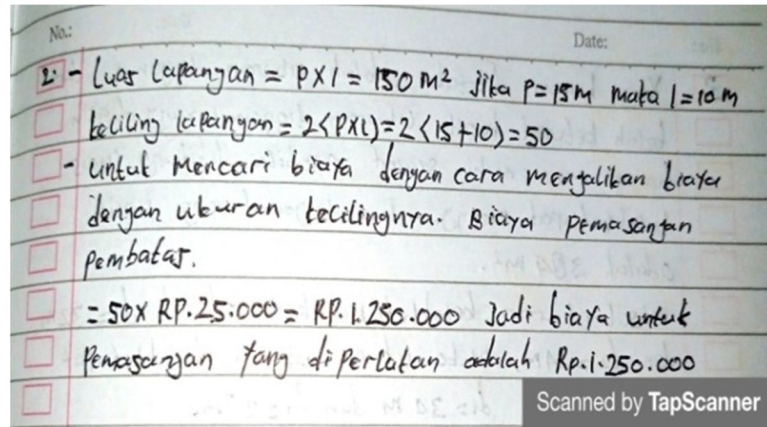 No.:
Date:
2. - Luas Lapangan = P x l = 150 m² jika P = 15 m maka l = 10 m
keliling lapangan = 2 < P x L) = 2 < 15 + 10) = 50
- untuk mencari biaya dengan cara mengalikan biaya
dengan ukuran kecilingnya. Biaya pemasangan
pembatas.
= 50 x RP. 25.000 = RP. 1.250.000 Jadi biaya untuk
pemasangan yang diperlukan adalah Rp. 1.250.000
Scanned by TapScanner